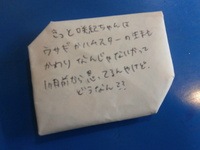 きっと咲紀ちゃんは
ウサギかハムスターの生まれ
かわりなんじゃないかって
1ヶ月前から思ってるんやけど、
どうなん?!